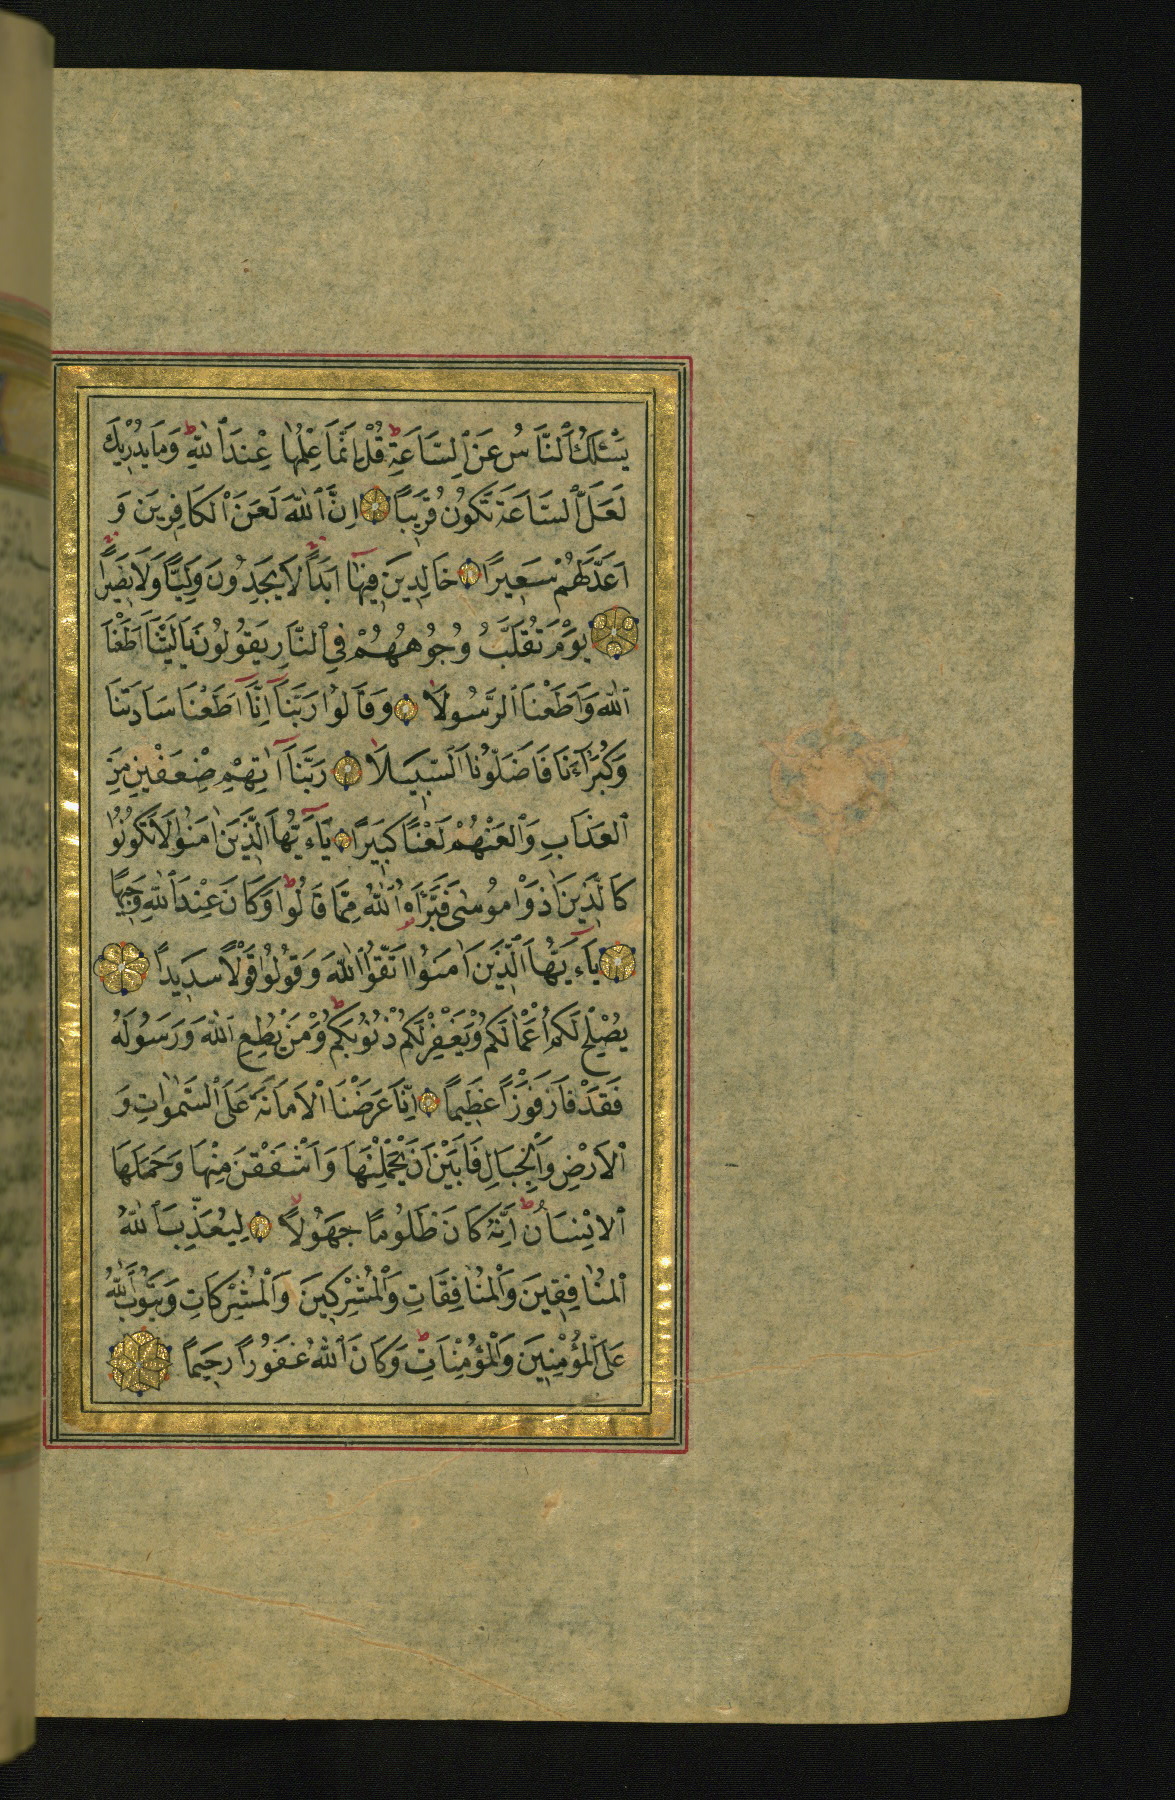 يَسْئَلُكَ ٱلنَّاسُ عَنِ ٱلسَّاعَةِ قُلْ اِنَّمَا عِلْمُهَا عِنْدَ ٱللّٰهِ وَمَا يُدْرِيكَ
لَعَلَّ ٱلسَّاعَةَ تَكُونُ قَرِيبًا اِنَّ ٱللّٰهَ لَعَنَ ٱلْكَافِرِينَ وَ
اَعَدَّ لَهُمْ سَعِيرًا خَالِدِينَ فِيهَا اَبَدًا لَا يَجِدُونَ وَلِيًّا وَلَا نَصِيرًا
يَوْمَ تُقَلَّبُ وُجُوهُهُمْ فِي ٱلنَّارِ يَقُولُونَ يَا لَيْتَنَا اَطَعْنَا
ٱللّٰهَ وَاَطَعْنَا ٱلرَّسُولَا وَقَالُوا رَبَّنَا اِنَّا اَطَعْنَا سَادَتَنَا
وَكُبَرَآءَنَا فَاَضَلُّونَا ٱلسَّبِيلَا رَبَّنَا اٰتِهِمْ ضِعْفَيْنِ مِنَ
ٱلْعَذَابِ وَٱلْعَنْهُمْ لَعْنًا كَبِيرًا يَآءَيُّهَا ٱلَّذِينَ اٰمَنُوا لَا تَكُونُوا
كَٱلَّذِينَ اٰذَوْا مُوسٰى فَبَرَّاَهُ ٱللّٰهُ مِمَّا قَالُوا وَكَانَ عِنْدَ ٱللّٰهِ وَجِيهًا
يَآءَيُّهَا ٱلَّذِينَ اٰمَنُوا ٱتَّقُوا ٱللّٰهَ وَقُولُوا قَوْلًا سَدِيدًا
يُصْلِحْ لَكُمْ اَعْمَالَكُمْ وَيَغْفِرْ لَكُمْ ذُنُوبَكُمْ وَمَنْ يُطِعِ ٱللّٰهَ وَرَسُولَهُ
فَقَدْ فَازَ فَوْزًا عَظِيمًا اِنَّا عَرَضْنَا ٱلْاَمَانَةَ عَلَى ٱلسَّمٰوَاتِ وَ
ٱلْاَرْضِ وَٱلْجِبَالِ فَاَبَيْنَ اَنْ يَحْمِلْنَهَا وَاَشْفَقْنَ مِنْهَا وَحَمَلَهَا
ٱلْاِنْسَانُ اِنَّهُ كَانَ ظَلُومًا جَهُولًا لِيُعَذِّبَ ٱللّٰهُ
ٱلْمُنَافِقِينَ وَٱلْمُنَافِقَاتِ وَٱلْمُشْرِكِينَ وَٱلْمُشْرِكَاتِ وَيَتُوبَ ٱللّٰهُ
عَلَى ٱلْمُؤْمِنِينَ وَٱلْمُؤْمِنَاتِ وَكَانَ ٱللّٰهُ غَفُورًا رَحِيمًا